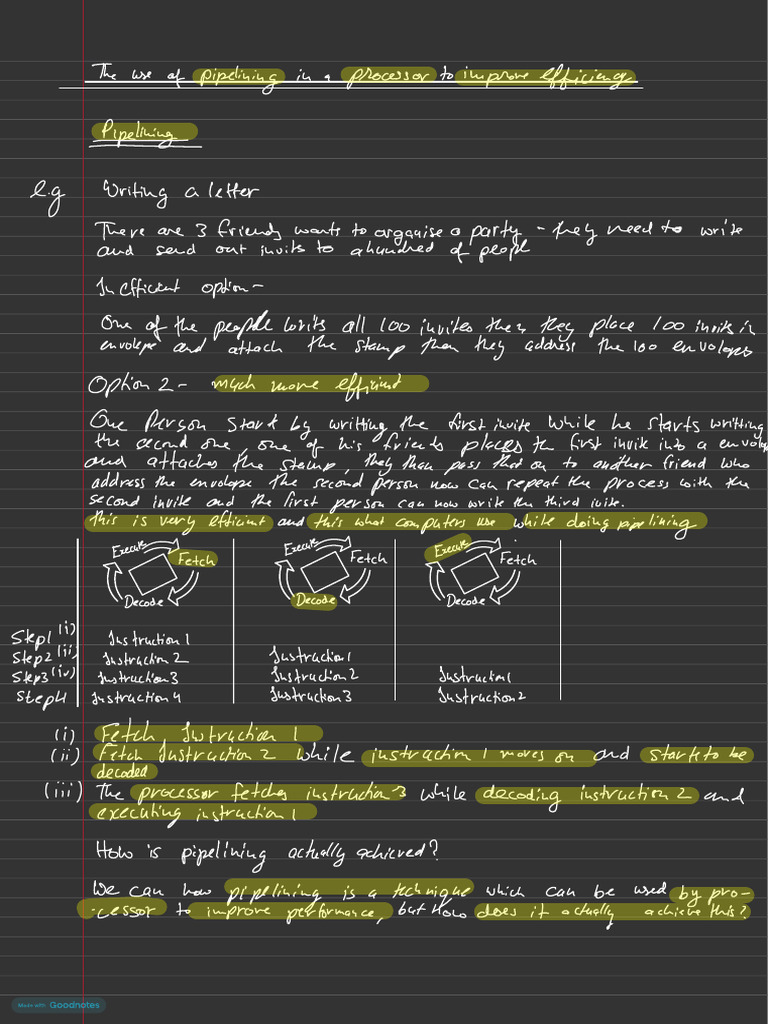 The use of pipelining in a processor to improve efficiency
Pipelining
e.g Writing a letter
There are 3 friends wants to organise a party - they need to write
and send out invits to ahundred of peopl
Inefficient option -
One of the people writs all 100 invites then they place 100 invits in
envolope and attach the stamp then they address the 100 envolopes
Option 2 - much more efficient
One Person start by writting the first invite while he starts writting
the second one, one of his friends places th first invite into a envolop
and attaches the stamp, they then pass that on to another friend who
address the envelope the second person now can repeat the process with the
second invite and the first person can now write the third invite.
this is very efficient and this what computers use while doing pipelining
Execute Fetch Decode
Execute Fetch Decode
Execute Fetch Decode
Step1 (i) Instruction 1
Step2 (ii) Instruction 2 Instruction1
Step3 (iv) Instruction3 Instruction2 Instruction1
Step4 Instruction4 Instruction3 Instruction2
(i) Fetch Instruction 1
(ii) Fetch Instruction 2 while instruction 1 moves on and starts to be
decoded
(iii) The processor fetches instruction 3 while decoding instruction 2 and
executing instruction 1
How is pipelining actually achieved?
We can how pipelining is a technique which can be used by pro-
-cessor to improve performance, but how does it actually achieve this?
Made with Goodnotes